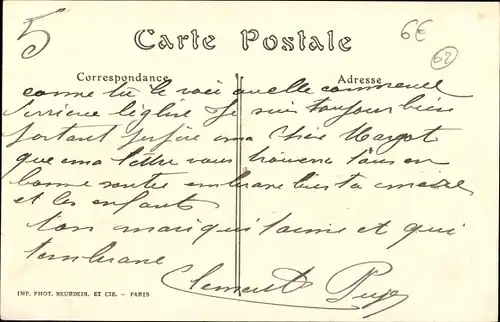 5
6E
62
Carte Postale
Correspondance
Adresse
conme tu le voie quelle commence
derriere léglise Je suis toujour bien
portant jespère ma Chère Margot
que ma lettre vous trouvera tous en
bonne santée embrasse bien ta mère
et les enfants
ton mari qui t'aime et qui
t'embrasse
Clement
IMP. PHOT. NEURDEIN. ET CIE. – PARIS